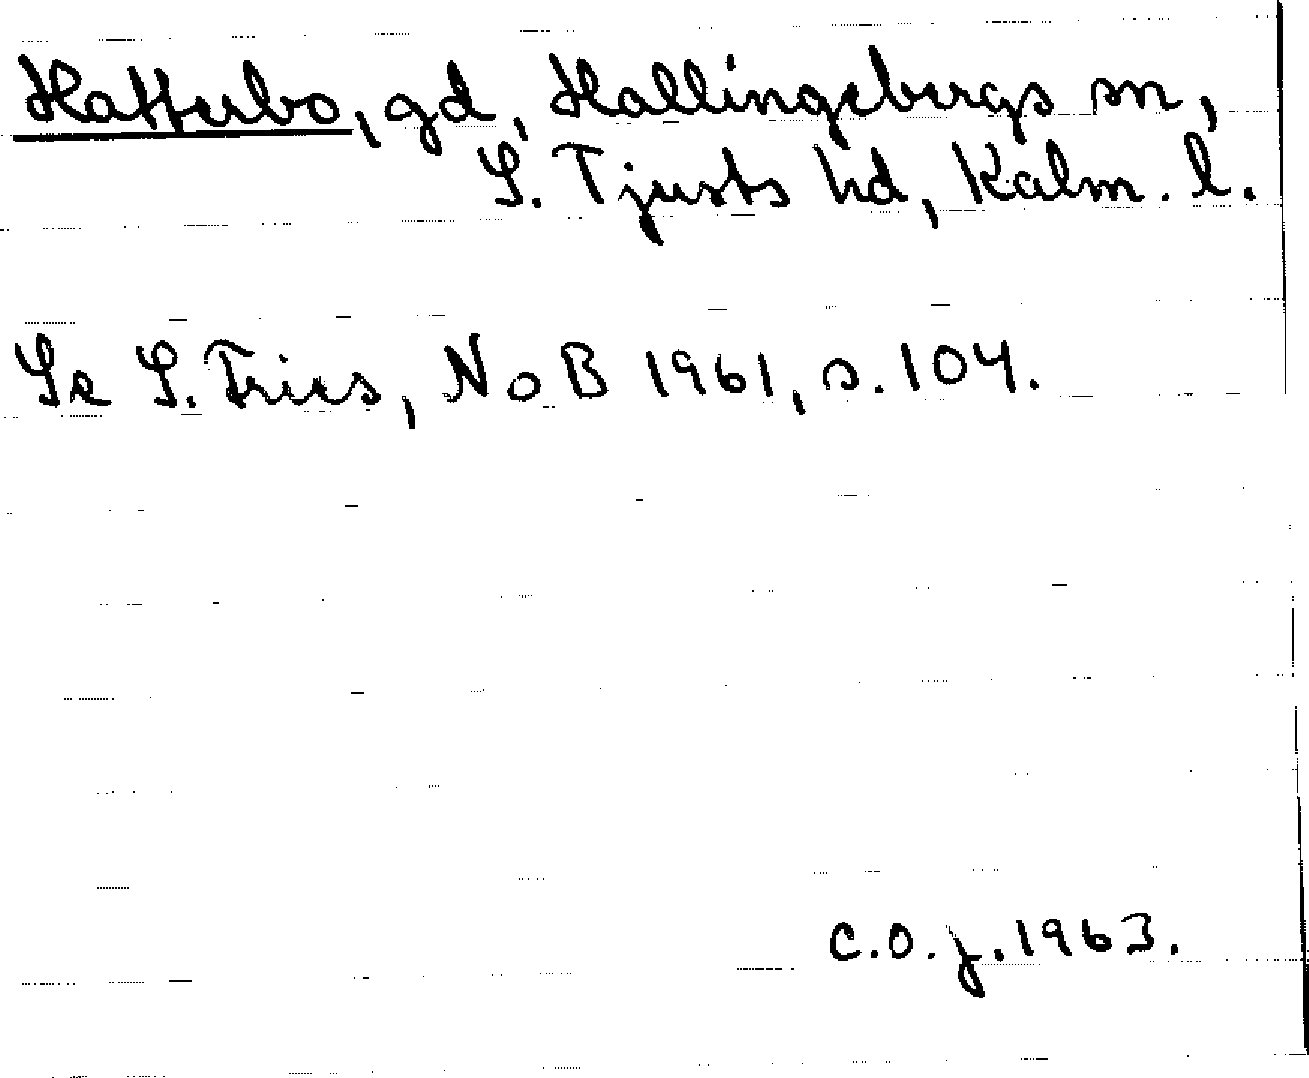 Hatterbo, gd, Hallingebergs sn,
S. Tjusts hd, Kalm. l.
Se S. Fries, NoB 1961, s. 104.
C.O.J. 1963.